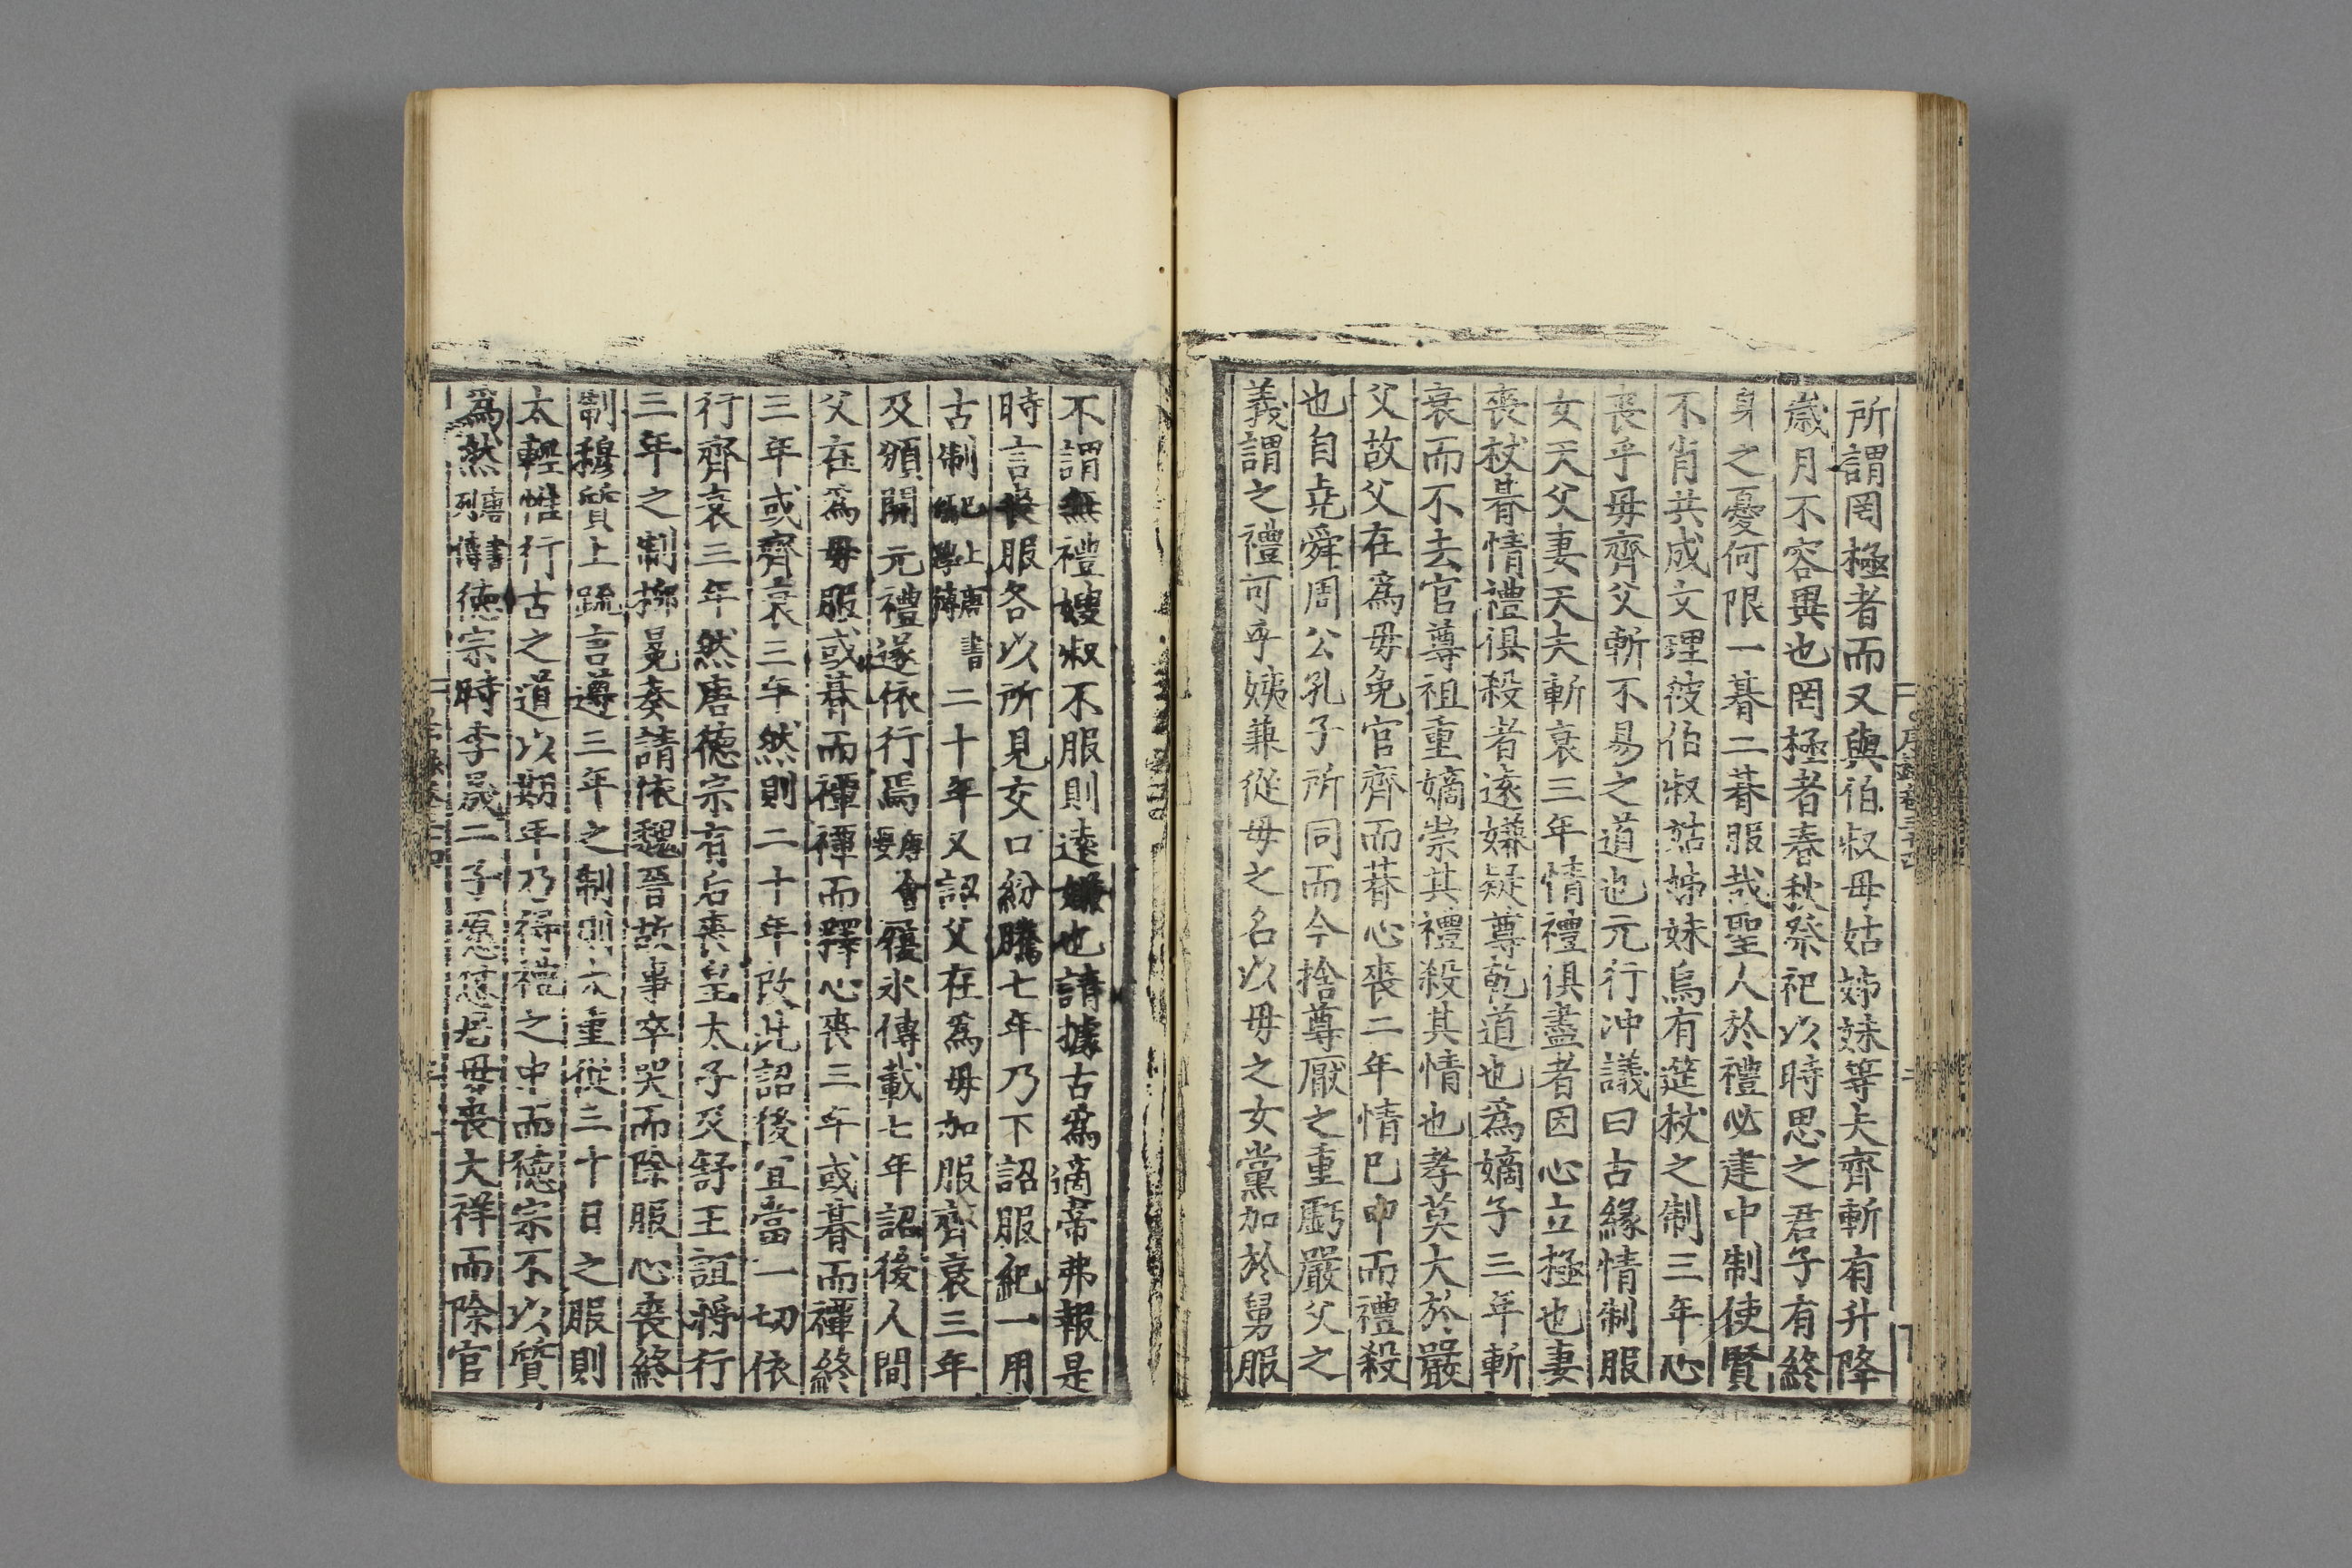 所謂罔極者而又與伯叔母姑姊妹等夫齊斬有升降
歲月不容異也罔極者春秋祭祀以時思之君子有終
身之憂何限一朞二朞服哉聖人於禮必建中制使賢
不肖共成文理彼伯叔姑姊妹烏有筵杖之制三年心
喪乎母齊父斬不易之道也元行冲議曰古緣情制服
女天父妻天夫斬衰三年情禮俱盡者因心立極也妻
喪杖朞情禮俱殺者遠嫌疑尊乾道也爲嫡子三年斬
衰而不去官尊祖重嫡崇其禮殺其情也孝莫大於嚴
父故父在爲母免官齊而朞心喪二年情已申而禮殺
也自堯舜周公孔子所同而今捨尊厭之重虧嚴父之
義謂之禮可乎姨兼從母之名以母之女黨加於舅服
不謂無禮嫂叔不服則遠嫌也請據古爲適帝弗報是
時言喪服各以所見交口紛騰七年乃下詔服紀一用
古制 二十年又詔父在爲母加服齊衰三年
及頒開元禮遂依行焉唐會要履氷傳載七年詔後人間
父在爲母服或朞而禫禫而釋心喪三年或朞而禫終
三年或齊衰三年然則二十年改此詔後宜當一切依
行齊衰三年然唐德宗有后喪皇太子及舒王誼將行
三年之制柳冕奏請依魏晉故事卒哭而除服心喪終
制穆質上疏言遵三年之制則太重從三十日之服則
太輕惟行古之道以期年乃得禮之中而德宗不以質
爲然唐書列傳德宗時李晟二子愿憑居母喪大祥而除官